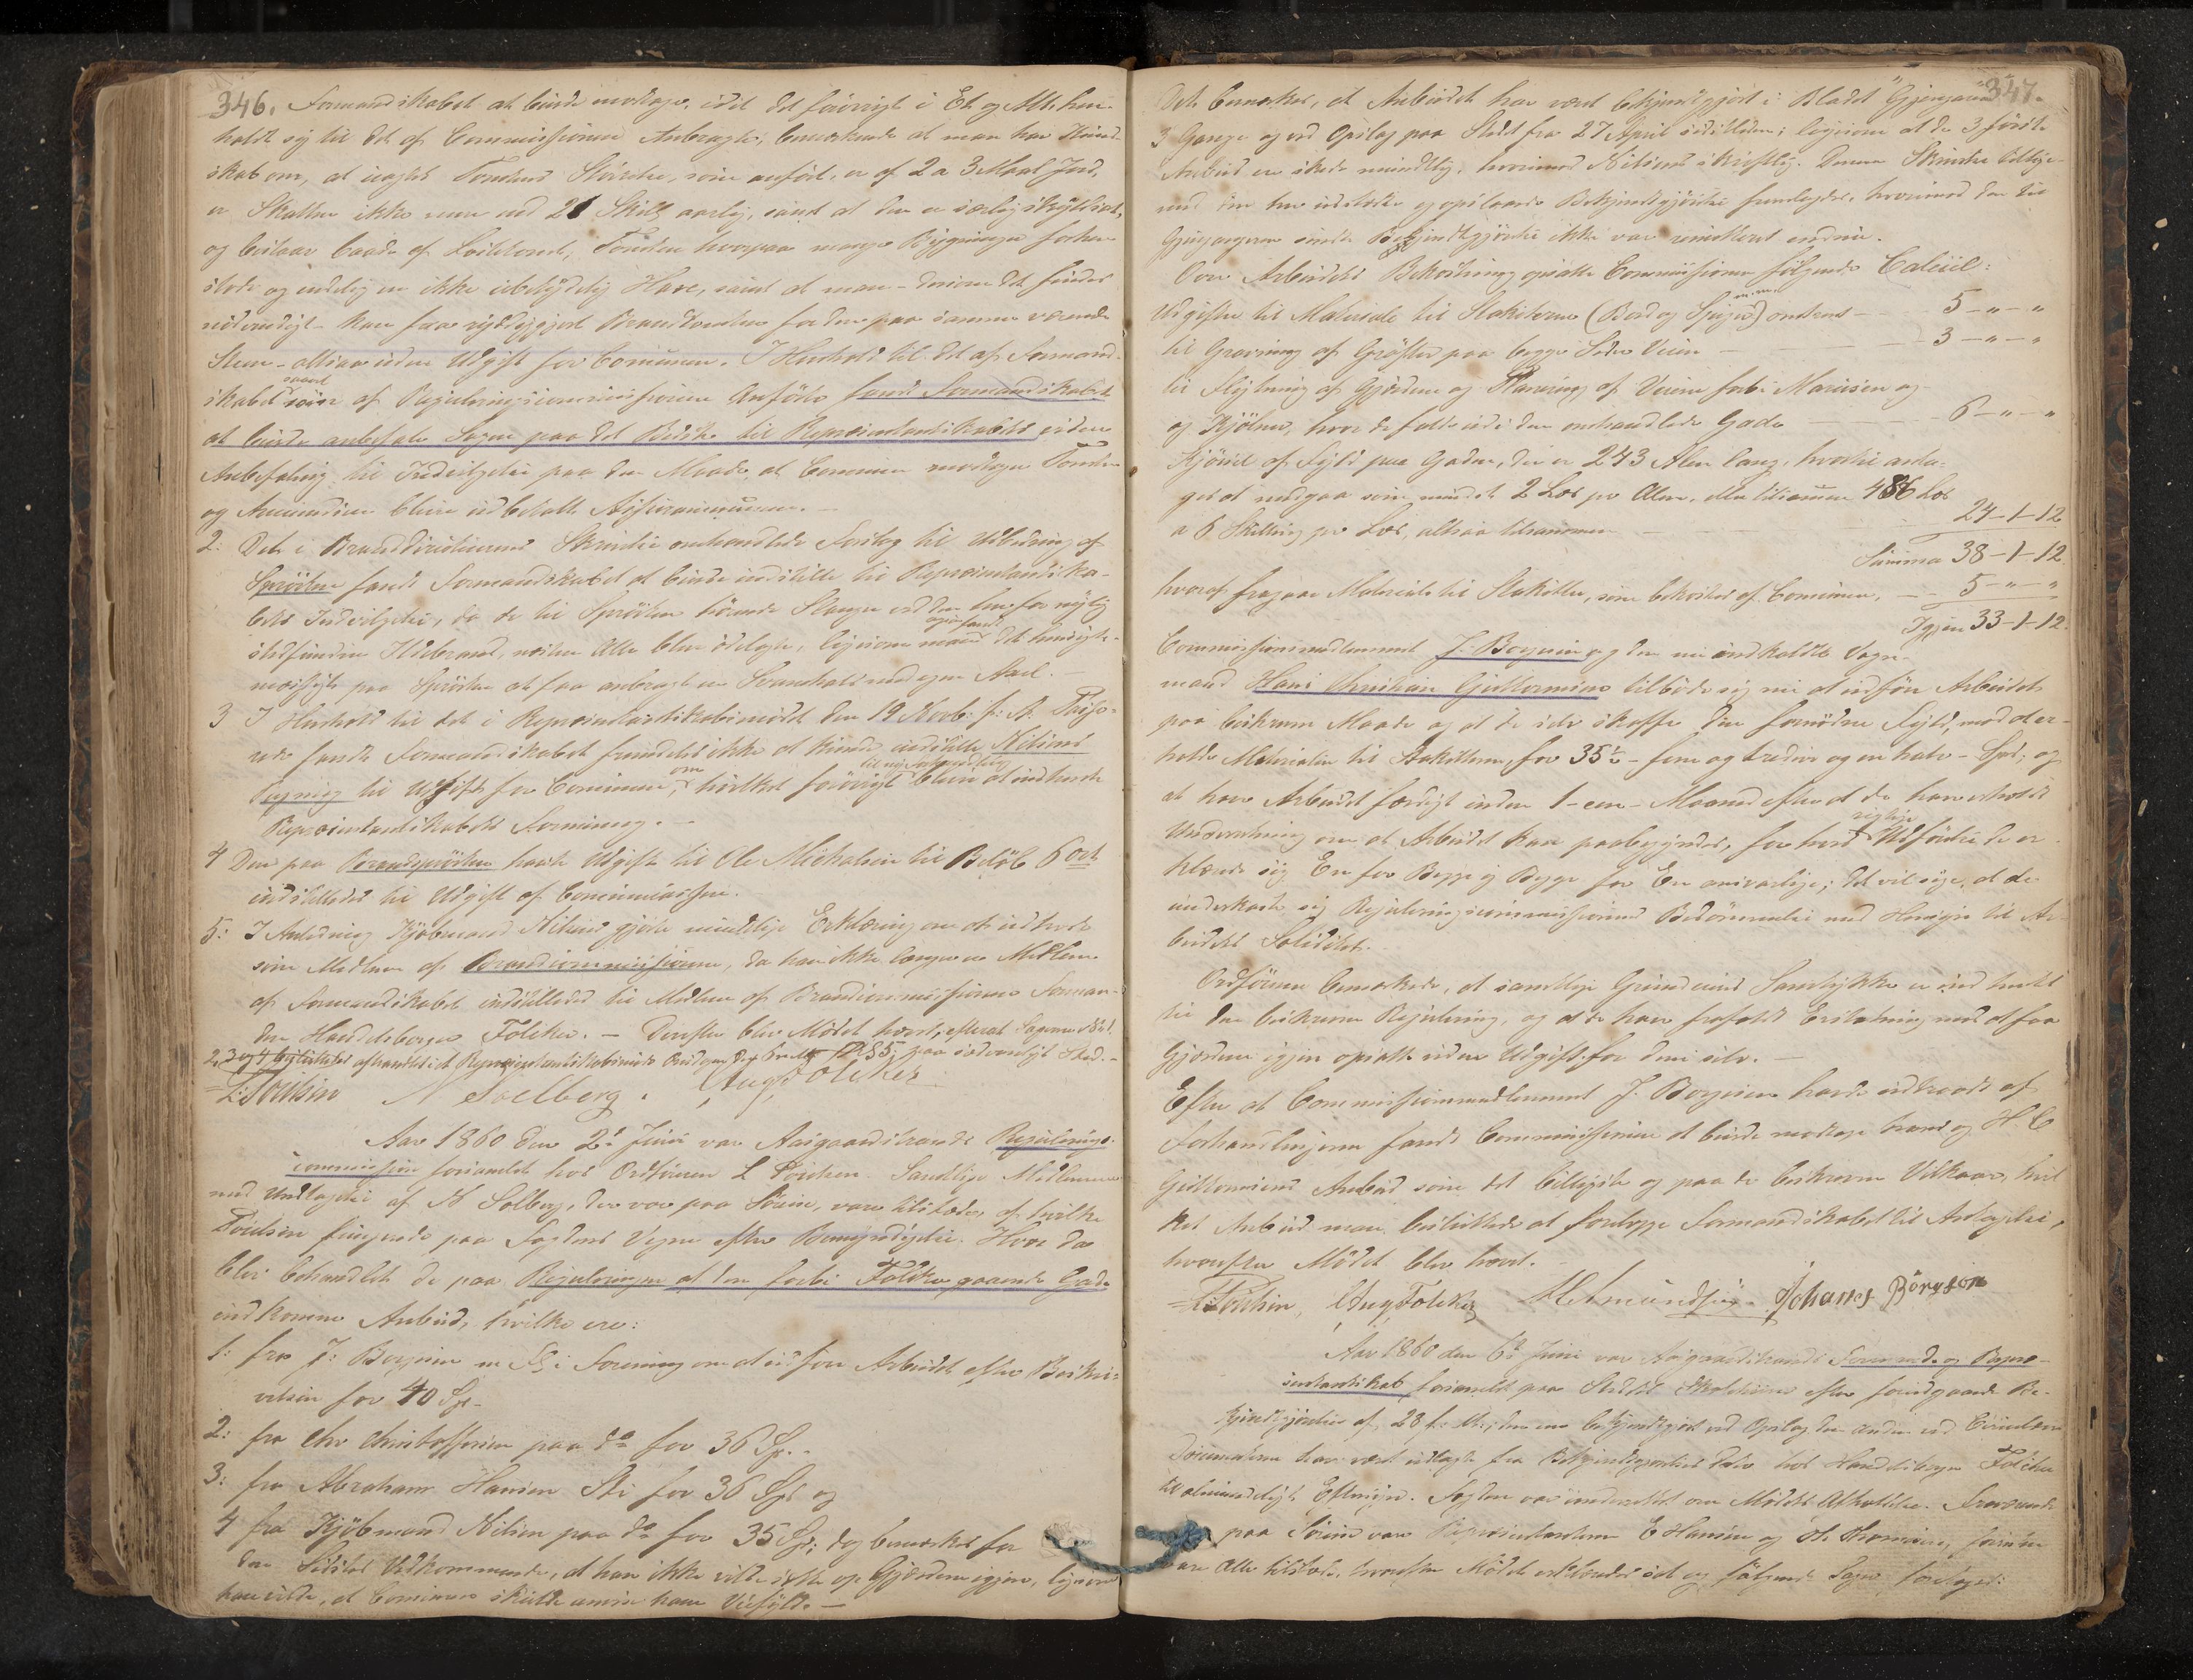 346.
Formandskabet at burde modtage, idet det forövrigt i Et og Alt hen-
holdt sig til det af Commissionen Anbragte; bemærkende at man har Kund-
skab om, at uagtet Tomtens Störrelse, som anfört, er af 2 a 3 Maal Jord,
er Skatten ikke mere end 21 Skill aarlig, samt at den er særlig skyldsat,
og bestaar baade af Tomten hvorpaa mange Bygninger forhen
stode og endelig en ikke ubetydelig Have, samt at man - dersom det findes
nödvendigt - kan faae ryddiggjort Brandtomten for den paa samme værende
Steen - altsaa uden Udgift for Communen. I Henhold til det af Formand-
skabet saavel som af Reguleringscommissionen Anförte fandt Formandskabet
at burde anbefale Sagen paa det Bedste til Repræsentantskabets videre
Anbefaling til Indvilgelse paa den Maade, at Communen modtager Tomten
og Amtmanden bliver udbetalt Assurancesummen. -
2: Det i Branddirecteurens Skrivelse omhandlede Forslag til Udbedring af
Spröiten fandt Formandskabet at burde indstille til Repræsentantska-
bets Indvilgelse, da de til Spröiten hörende Slanger ved den her for nylig
stedfundne Ildebrand, næsten Alle bleve ödelagte, ligesom man ogsaa fandt det hensigts-
mæssigt paa Spröiten at faa anbragt en Svanehals med egen Axel. -
3 I Henhold til det i Repræsentantskabsmödet den 19 Novb: f: A: Passe-
rede fandt Formandskabet fremdeles ikke at kunde indstille Nilsens
Regning til Udgift for Communen, om hvilket forövrigt bliver at indhente
Repræsentantskabets Formening. -
4 Den paa Brandspröiten havte Udgift til Ole Michelsen til Belöb 6 ort
indstilledes til Udgift af Communecassen.
5: I Anledning Kjöbmand Nilsens gjorte mundtlige Erklæring om at udtræde
som Medlem af Brandcommissionen, da han ikke længere er Medlem
af Formandskabet indstilledes til Medlem af Brandcommissionen Forman-
den Handelsborger Fölcker. - Derefter blev Mödet hævet, efterat Sagerne No 1.
2, 3 og 4 besluttedes afhandlet i et Repræsentantskabsmöde Onsdag d 6 Juni Kl 5, paa sædvanligt Sted. -
L: Poulsen N Soelberg. Aug Fölcker
Aar 1860 den 2d Juni var Aasgaardstrands Regulerings-
commission forsamlet hos Ordföreren L Poulsen. Samtlige Medlemmer
med Undtagelse af N Solberg, der var paa Söreise, vare tilstæde, af hvilke
Poulsen fungerede paa Fogdens Vegne efter Bemyndigelse. Hvor da
blev behandlet de paa Reguleringen af den forbi Fölcker gaaende Gade
indkomne Anbud, hvilke ere:
1: fra J: Borgersen m Fl i Forening om at udföre Arbeidet efter Beskri-
velsen for 40 Spd. -
2: fra Chr Christoffersen paa do for 36 Sp. -
3: fra Abraham Hansen Sti for 36 Spd og
4 fra Kjöbmand Nilsen paa do for 35 Spd; dog bemærkes for
den Sidstes Vedkommende, at han ikke vilde sætte op Gjærderne igjen, ligesom
han vilde, at Communen skulde anvise ham Veifyldt. -
347.
Det bemærkes, at Anbudet har været bekjendtgjort i Bladet "Gjengangeren"
3 Gange og ved Opslag paa Stedet fra 27 April sidstleden; ligesom at de 3 förste
Anbud ere skede mundtlig, hvorimod Nilsens skriftlig. Denne Skrivelse tillige-
med den her udstædte og opslaaede Bekjendtgjörelse fremlagdes, hvorimod den til
Gjengangeren sendte Bekjendtgjörelse ikke var remitteret endnu.
Over Arbeidets Bekostning opsatte Commissionen fölgende Calcül:
Udgifter til Materiale til Stakitterne (Bord og Spiger m. m.) omtrent - 5 - " - "
til Gravning af Gröfter paa begge Sider Veien - 3 - " - "
til Flytning af Gjerderne og Planering af Veien forbi Mariusen og
og Kjölner, hvor de falde ud i den omhandlede Gade - 6 - " - "
Kjörsel af Fyld paa Gaden, der er 243 Alen lang, hvortil anta-
ges at medgaa som mindst 2 Læs pr Alen, eller tilsammen 486 Læs
a 6 Skilling pr Læs, altsaa tilsammen 24 - 1 - 12
Summa 38 - 1 - 12
hvoraf fragaar Materiale til Stakitter, som bekostes af Communen, - 5 - " - "
Igjen 33 - 1 - 12.
Commissionsmedlemmet J. Borgersen og den nu indkaldte Vogn-
mand Hans Christian Guttormsen tilböde sig nu at udföre Arbeidet
paa beskreven Maade og at de selv skaffe den fornödne Fyld, mod at er-
holde Materialier til Stakitterne, for 35½ - fem og tredive og en halv - Spd, og
at have Arbeidet færdigt inden 1 - een - Maaned efter at de have erholdt
Underretning om at Arbeidet kan paabegyndes, for hvis rigtige Udförelse de er-
klærede sig En for Begge og Begge for En ansvarlige; det vil sige, at de
underkaste sig Reguleringscommissionens Bedömmelse med Hensyn til Ar-
beidets Soliditet. -
Ordföreren bemærkede, at samtlige Grundeieres Samtykke er indhentet
til den beskrevne Regulering, og at de have frafaldt Erstatning mod at faa
Gjerderne igjen opsatte uden Udgift for dem selv. -
Efter at Commissionsmedlemmet J. Borgersen havde udtraadt af
Forhandlingerne fandt Commissionen at burde modtage hans og H. C
Guttormsens Anbud som det billigste og paa de beskrevne Vilkaar, hvil
ket Anbud man besluttede at forelægge Formandskabet til Antagelse,
hvorefter Mödet blev hævet. -
L: Poulsen, Aug Fölcker Johanes Börgeson
Aar 1860 den 6te Juni var Aasgaardstrands Formands og Repræ-
sentantskab forsamlet paa Stedets Skolehuus efter foregaaende Be-
kjendtgjörelse af 28 f: M:, den ene bekjendtgjort ved Opslag den anden ved Circulære
Documenterne have været udlagte fra Bekjendtgjörelsens Dato hos Handelsborger Fölcker
til almindeligt Eftersyn. Fogden var underrettet om Mödets Afholdelse. Fraværende
paa Söreise vare Repræsentanterne E Hansen og forresten
vare Alle tilstæde, hvorefter Mödet erklæredes sat og fölgende Sager foretages: